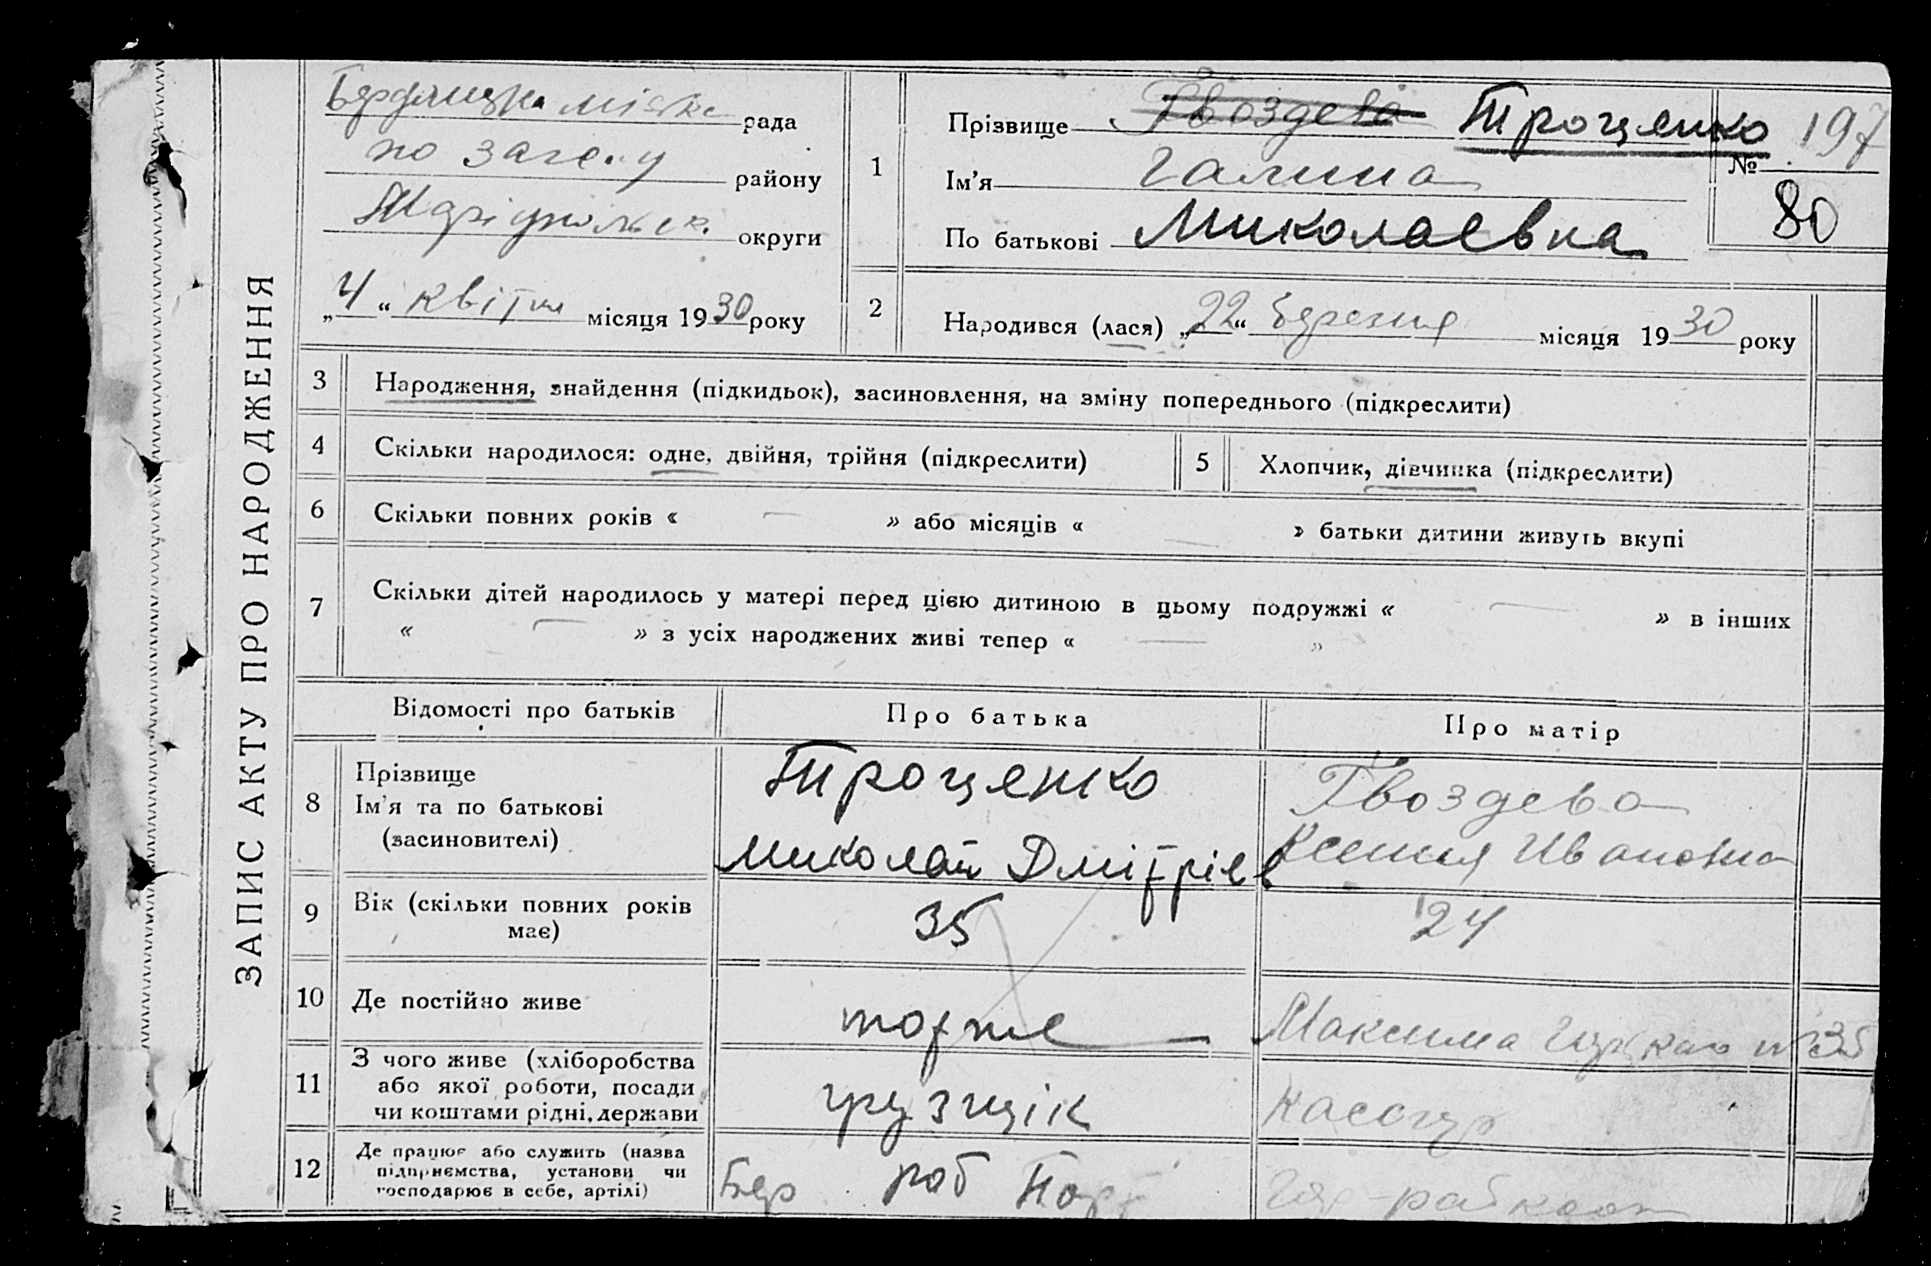 ЗАПИС АКТУ ПРО НАРОДЖЕННЯ
рада
по загсу району
округи
„4“ квітня місяця 1930 року
1 Прізвище Гвоздева Троценко
Ім'я Галина
По батькові Миколаевна
№ 197
80
2 Народився (лася) „22“ березня місяця 1930 року
3 Народження, знайдення (підкидьок), засиновлення, на зміну попереднього (підкреслити)
4 Скільки народилося: одне, двійня, трійня (підкреслити)
5 Хлопчик, дівчинка (підкреслити)
6 Скільки повних років « — » або місяців « — » батьки дитини живуть вкупі
7 Скільки дітей народилось у матері перед цією дитиною в цьому подружжі « — » в інших
« — » з усіх народжених живі тепер « — »
Відомості про батьків Про батька Про матір
8 Прізвище
Ім'я та по батькові
(засиновителі)
Троценко
Миколай Дмітріев
Гвоздева
Ксения Ивановна
9 Вік (скільки повних років
має)
35
24
10 Де постійно живе
Максима 35
11 З чого живе (хліборобства
або якої роботи, посади
чи коштами рідні, держави
грузщік
кассир
12 Де працює або служить (назва
підприємства, установи чи
господарює в себе, артілі)
Бер роб